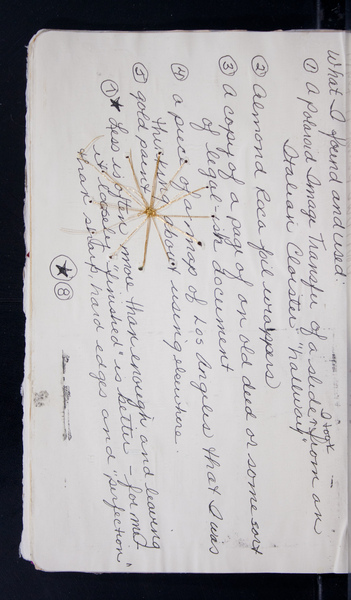 What I found and used:
① A polaroid Image Transfer of a slide I took from an
Italian Cloister "hallway"
② Almond Roca foil wrappers
③ A copy of a page of an old deed or some sort
of legal-ish document
④ A piece of a map of Los Angeles that I was
thinking about using elsewhere.
⑤ gold paint
⑦ ★ Less is often more than enough and leaving
it loosely "finished" is better — for me
than sharp, hard edges and "perfection"
★ ⑧